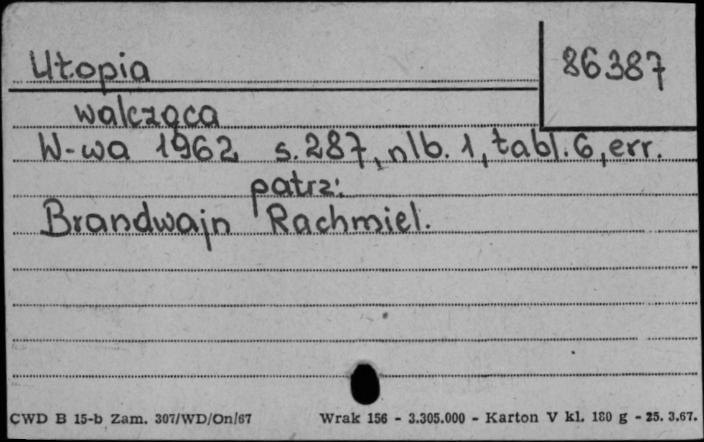 Utopia
86387
walcząca
W-wa 1962 s. 287, nlb. 1, tabl. 6, err.
patrz:
Brandwajn Rachmiel.
CWD B 15-b Zam. 307/WD/On/67 Wrak 156 - 3.305.000 - Karton V kl. 180 g - 25. 3.67.